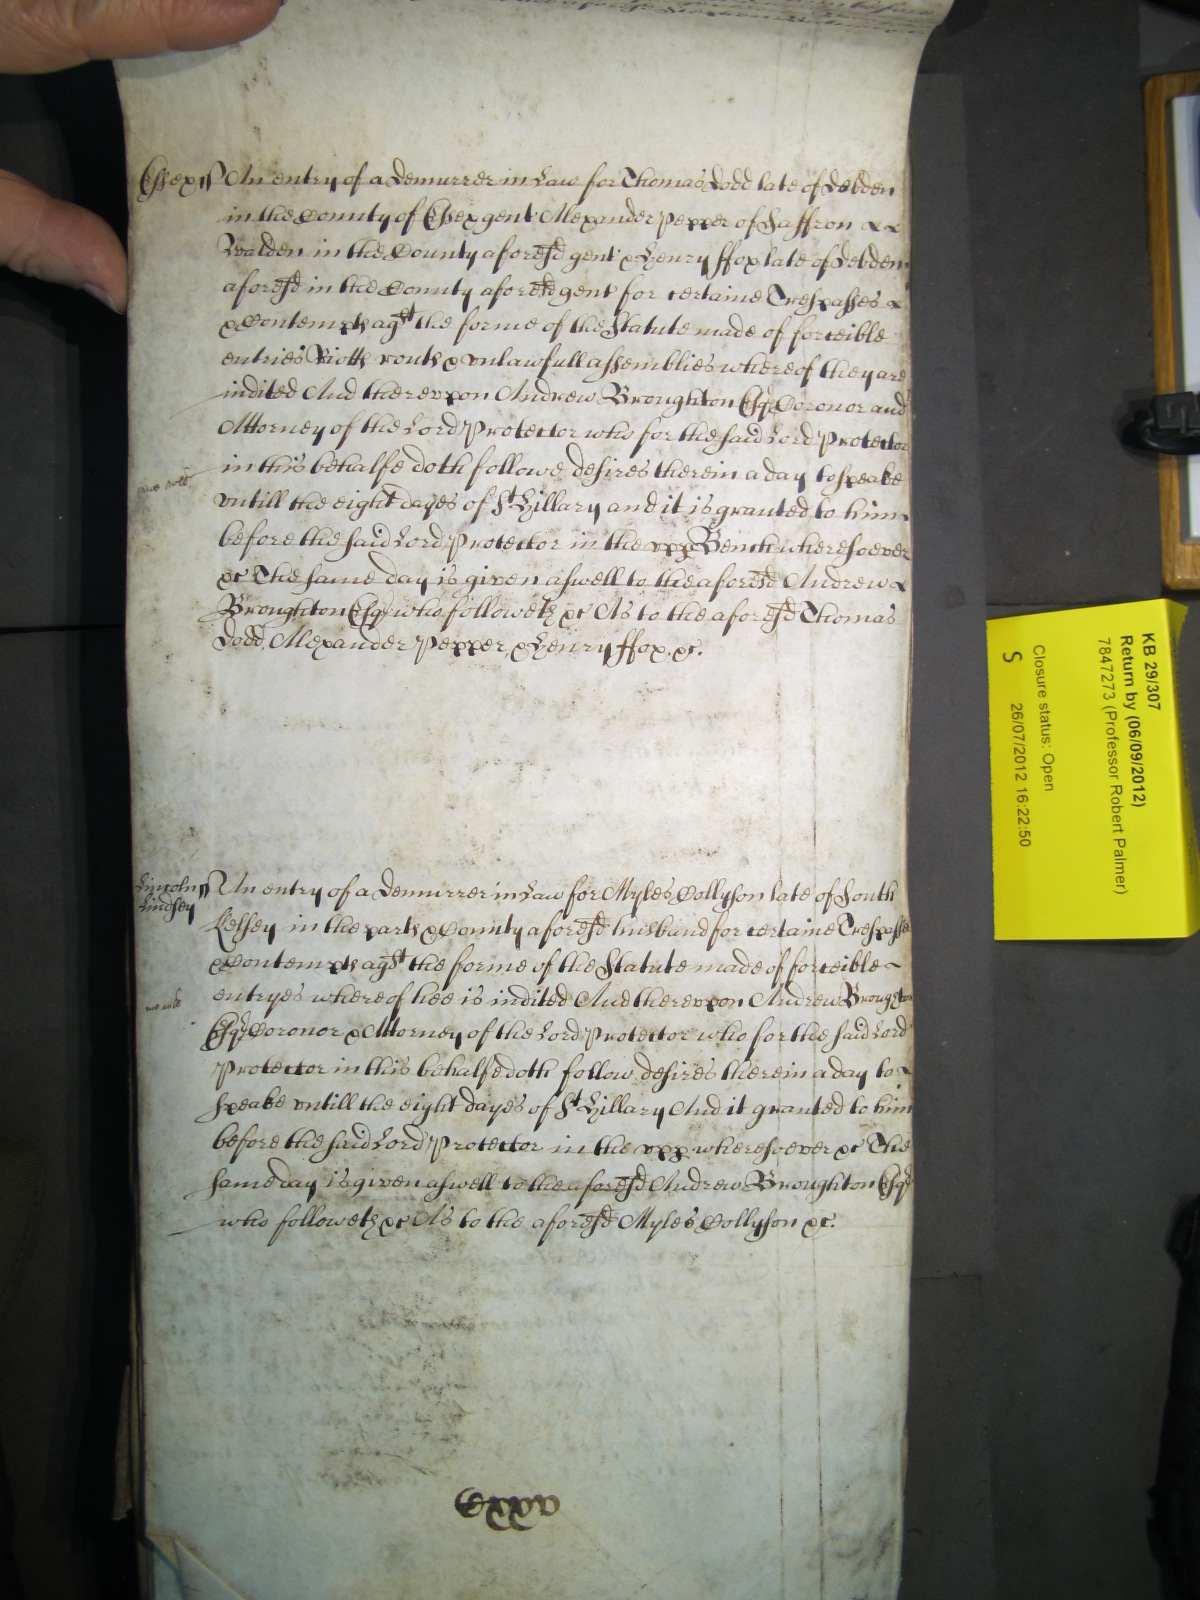 Essex ss An entry of a Demurrer in Law for Thomas Dodd late of Debden
in the County of Essex gent Alexander Pepper of Saffron
Walden in the County aforesd gent & Henry ffox late of Debden
aforesd in the County aforesd gent for certaine Trespasses &
& Contempts agst the forme of the Statute made of forceible
entries Riotts routs & unlawfull assemblies whereof they are
indited And thereuppon Andrew Broughton Esqr Coronor and
Attorney of the Lord Protector who for the said Lord Protector
in this behalfe doth followe desires therein a day to speake
untill the eight dayes of St Hillary and it is granted to him
before the said Lord Protector in the upp Bench wheresoever
&c The same day is given aswell to the aforesd Andrew &
Broughton Esqr who followeth &c As to the aforesd Thomas
Dodd, Alexander Pepper, & Henry ffox, &c.
Lincoln ss
Lindsey
An entry of a Demurrer in Law for Myles Collyson late of South
Kelsey in the parts & County aforesd husband for certaine Trespasses
& Contempts agst the forme of the Statute made of forceible
entryes whereof hee is indited And thereuppon Andrew Broughton
Esqr Coronor & Attorney of the Lord Protector who for the said Lord
Protector in this behalfe doth follow desires therein a day to
speake untill the eight dayes of St Hillary And it granted to him
before the said Lord Protector in the upp wheresoever &c The
same day is given aswell to the aforesd Andrew Broughton Esqr
who followeth &c As to the aforesd Myles Collyson &c.
KB 29/307
Return by (06/09/2012)
7847273 (Professor Robert Palmer)
Closure status: Open
S 26/07/2012 16:22:50